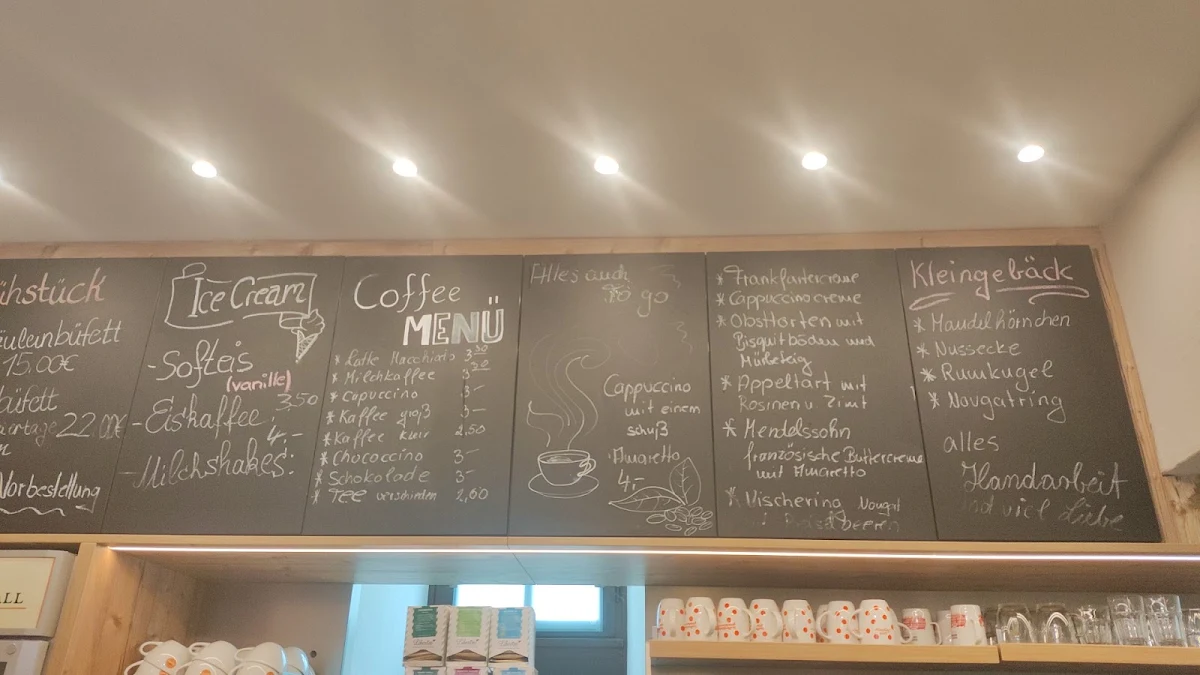 ühstück
äuleinbüfett
15.00€
büfett
iertage 22.00€
n
Vorbestellung
Ice Cream
- Softeis
(vanille)
3,50
- Eiskaffee
4,-
- Milchshakes:
Coffee
MENÜ
* Latte Macchiato 3,50
* Milchkaffee 3,20
* Capuccino 3-
* Kaffee groß 3-
* Kaffee klein 2,50
* Chococcino 3-
* Schokolade 3-
* Tee verschieden 2,60
Alles auch
to go
Cappuccino
mit einem
schuß
Amaretto
4,-
* Frankfurtercreme
* Cappuccinocreme
* Obsttorten mit
Bisquitböden und
Mürbeteig
* Appeltart mit
Rosinen u. Zimt
* Mendelssohn
französische Buttercreme
mit Amaretto
* Vischering Nougat
Preiselbeeren
Kleingebäck
* Mandelhörnchen
* Nussecke
* Rumkugel
* Nougatring
alles
Handarbeit
und viel Liebe
ALL